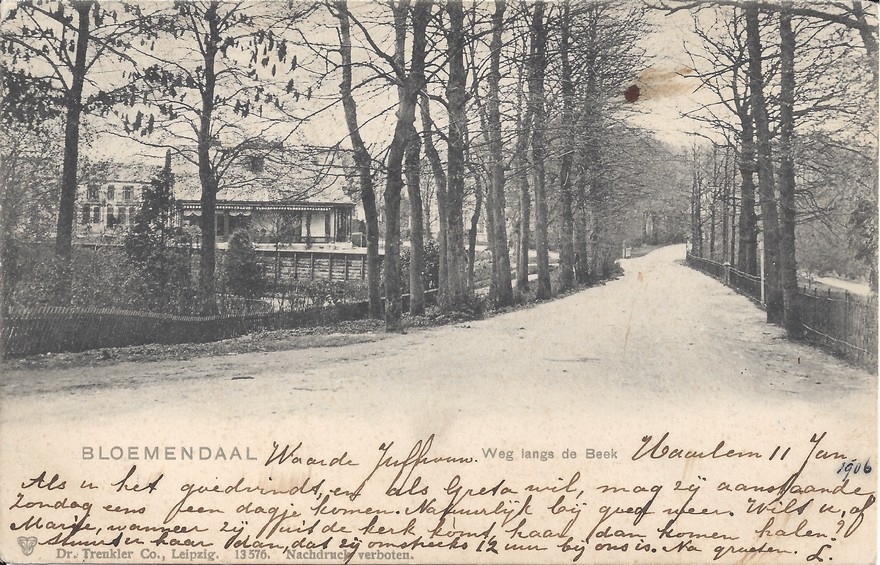 BLOEMENDAAL Waarde Juffrouw. Weg langs de Beek Haarlem 11 Jan.
1906
Als u het goedvindt, en als Greta wil, mag zij aanstaande
Zondag eens een dagje komen. Natuurlijk bij goed weer. Wilt u, of
Marie, wanneer zij uit de kerk komt, haar dan komen halen?
Stuurt u haar dan, dat zij omstreeks 12 uur bij ons is. Na groeten. L.
Dr. Trenkler Co., Leipzig. 13576. Nachdruck verboten.